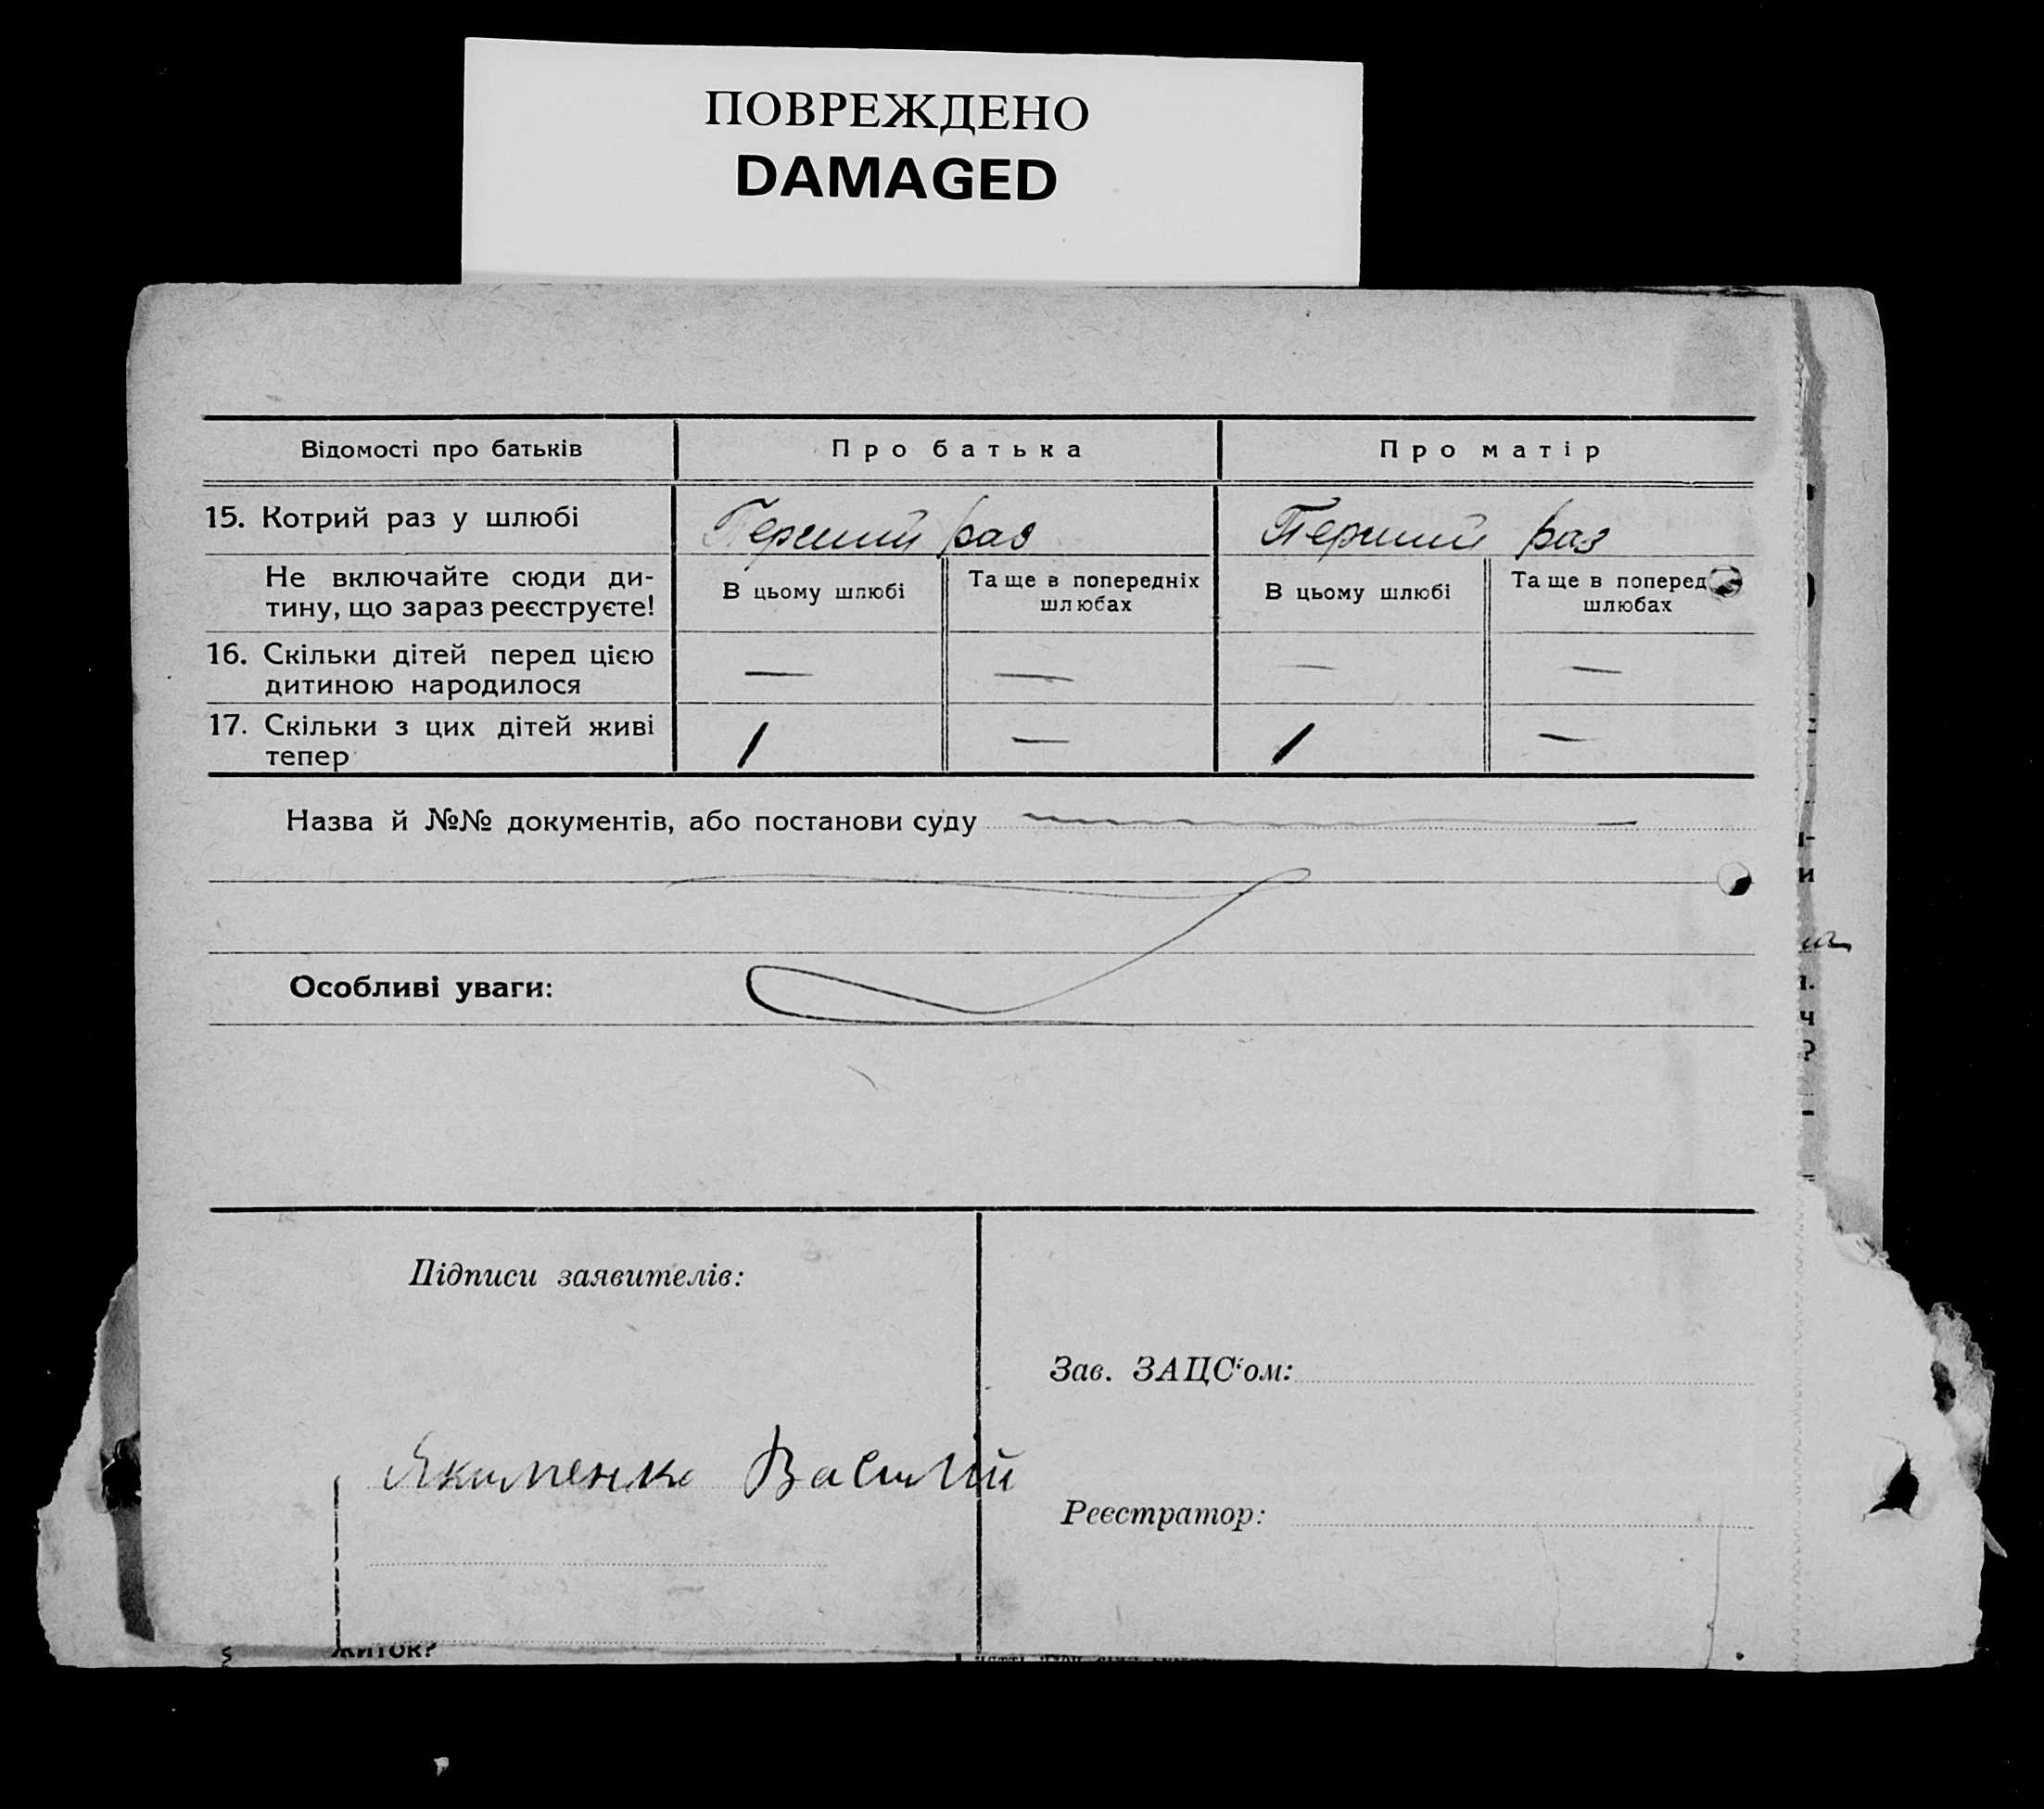 ПОВРЕЖДЕНО
DAMAGED
Відомості про батьків
Про батька
Про матір
15. Котрий раз у шлюбі
Перший раз
Перший раз
Не включайте сюди ди-
тину, що зараз реєструєте!
В цьому шлюбі
Та ще в попередніх
шлюбах
В цьому шлюбі
Та ще в поперед
шлюбах
16. Скільки дітей перед цією
дитиною народилося
— — — —
17. Скільки з цих дітей живі
тепер
1 — 1 —
Назва й №№ документів, або постанови суду
Особливі уваги:
Підписи заявителів:
Зав. ЗАЦС'ом:
Якименко Василий
Реєстратор:
житок?